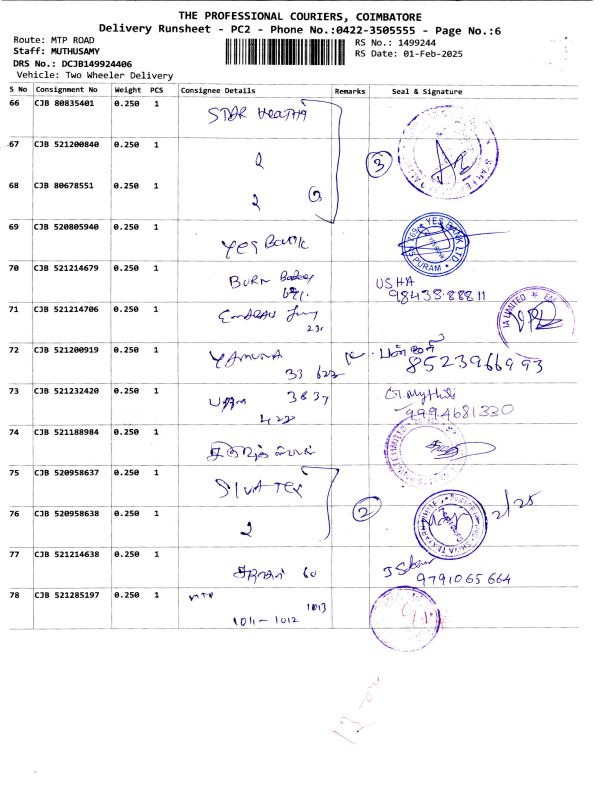 THE PROFESSIONAL COURIERS, COIMBATORE
Delivery Runsheet - PC2 - Phone No.:0422-3505555 - Page No.:6
Route: MTP ROAD
RS No.: 1499244
Staff: MUTHUSAMY
RS Date: 01-Feb-2025
DRS No.: DCJB149924406
Vehicle: Two Wheeler Delivery
S No Consignment No Weight PCS Consignee Details Remarks Seal & Signature
66 CJB 80835401 0.250 1 STAR Health
67 CJB 521200840 0.250 1 2 3
68 CJB 80678551 0.250 1 2
69 CJB 520805940 0.250 1 YES BANK YES BANK LTD
70 CJB 521214679 0.250 1 BURN USHA
98438.88811
71 CJB 521214706 0.250 1 IA LIMITED
72 CJB 521200919 0.250 1 YAMUNA
33 622 8523966993
73 CJB 521232420 0.250 1 3837
422 9994681330
74 CJB 521188984 0.250 1
75 CJB 520958637 0.250 1 SIVA TEX
76 CJB 520958638 0.250 1 2 2
77 CJB 521214638 0.250 1 60
9791065664
78 CJB 521285197 0.250 1 MTP 1013
1011-1012